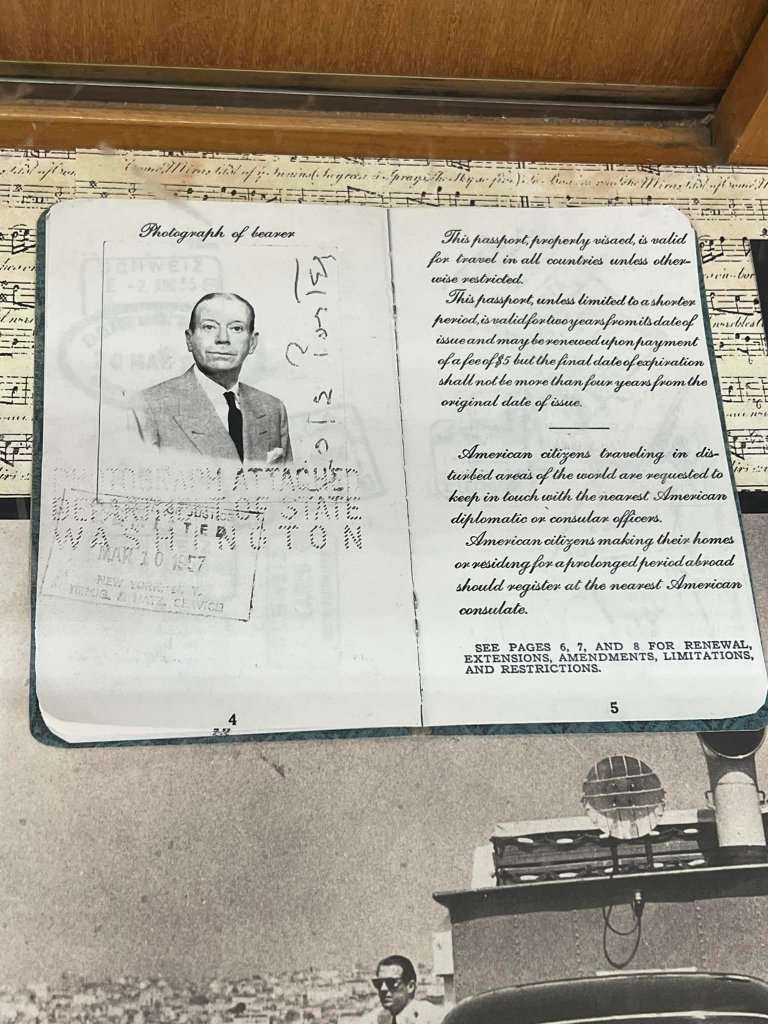 Photograph of bearer
SCHWEIZ
PHOTOGRAPH ATTACHED
DEPARTMENT OF STATE
WASHINGTON
OF JUSTICE
TED
MAR 10 1957
NEW YORK, N.Y.
IMMIG. & NATZ. SERVICE
4
This passport, properly visaed, is valid
for travel in all countries unless other-
wise restricted.
This passport, unless limited to a shorter
period, is valid for two years from its date of
issue and may be renewed upon payment
of a fee of $5 but the final date of expiration
shall not be more than four years from the
original date of issue.
American citizens traveling in dis-
turbed areas of the world are requested to
keep in touch with the nearest American
diplomatic or consular officers.
American citizens making their homes
or residing for a prolonged period abroad
should register at the nearest American
consulate.
SEE PAGES 6, 7, AND 8 FOR RENEWAL,
EXTENSIONS, AMENDMENTS, LIMITATIONS,
AND RESTRICTIONS.
5